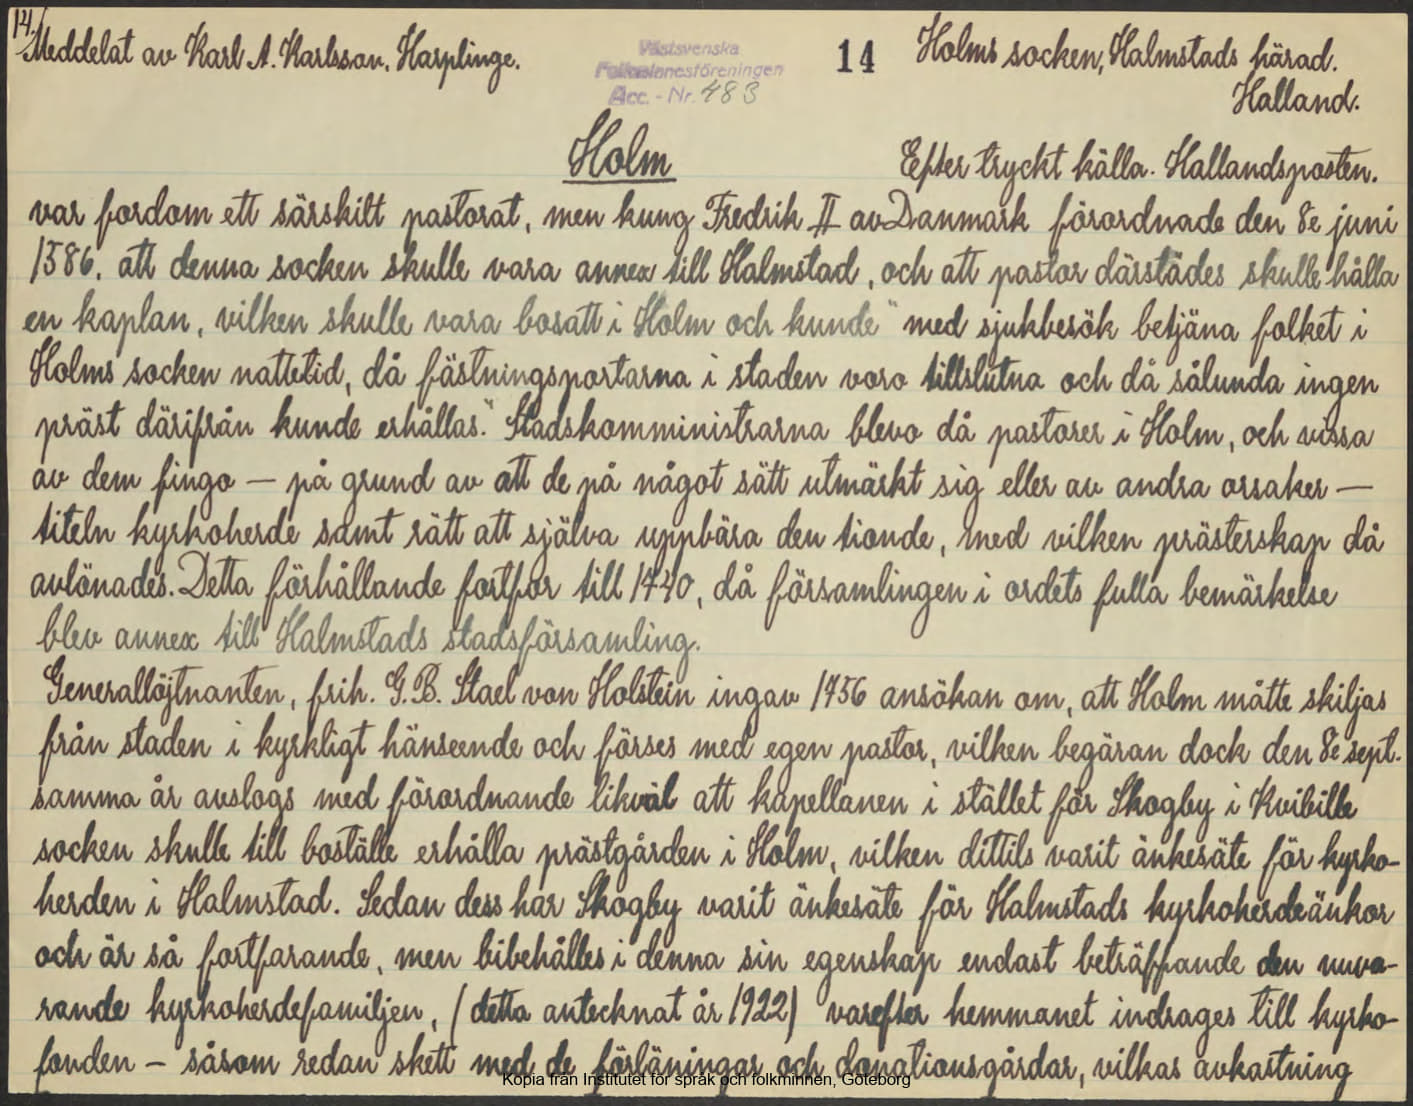 14.
Meddelat av Karl A. Karlsson, Harplinge.
Västsvenska
Folkminnesföreningen
Acc. - Nr. 483
14
Holms socken, Halmstads härad.
Halland.
Holm
Efter tryckt källa. Hallandsposten.
var fordom ett särskilt pastorat, men kung Fredrik II av Danmark förordnade den 8e juni
1586, att denna socken skulle vara annex till Halmstad, och att pastor därstädes skulle hålla
en kaplan, vilken skulle vara bosatt i Holm och kunde "med sjukbesök betjäna folket i
Holms socken nattetid, då fästningsportarna i staden voro tillslutna och då sålunda ingen
präst därifrån kunde erhållas." Stadskomministrarna blevo då pastorer i Holm, och vissa
av dem fingo — på grund av att de på något sätt utmärkt sig eller av andra orsaker —
titeln kyrkoherde samt rätt att själva uppbära den tionde, med vilken prästerskap då
avlönades. Detta förhållande fortfor till 1740, då församlingen i ordets fulla bemärkelse
blev annex till Halmstads stadsförsamling.
Generallöjtnanten, frih. G.B. Stael von Holstein ingav 1756 ansökan om, att Holm måtte skiljas
från staden i kyrkligt hänseende och förses med egen pastor, vilken begäran dock den 8e sept.
samma år avslogs med förordnande likväl att kapellanen i stället för Skogby i Kvibille
socken skulle till boställe erhålla prästgården i Holm, vilken dittils varit änkesäte för kyrko-
herden i Halmstad. Sedan dess har Skogby varit änkesäte för Halmstads kyrkoherdeänkor
och är så fortfarande, men bibehålles i denna sin egenskap endast beträffande den nuva-
rande kyrkoherdefamiljen, (detta antecknat år 1922) varefter hemmanet indrages till kyrko-
fonden — såsom redan skett med de förläningar och donationsgårdar, vilkas avkastning
Kopia från Institutet för språk och folkminnen, Göteborg